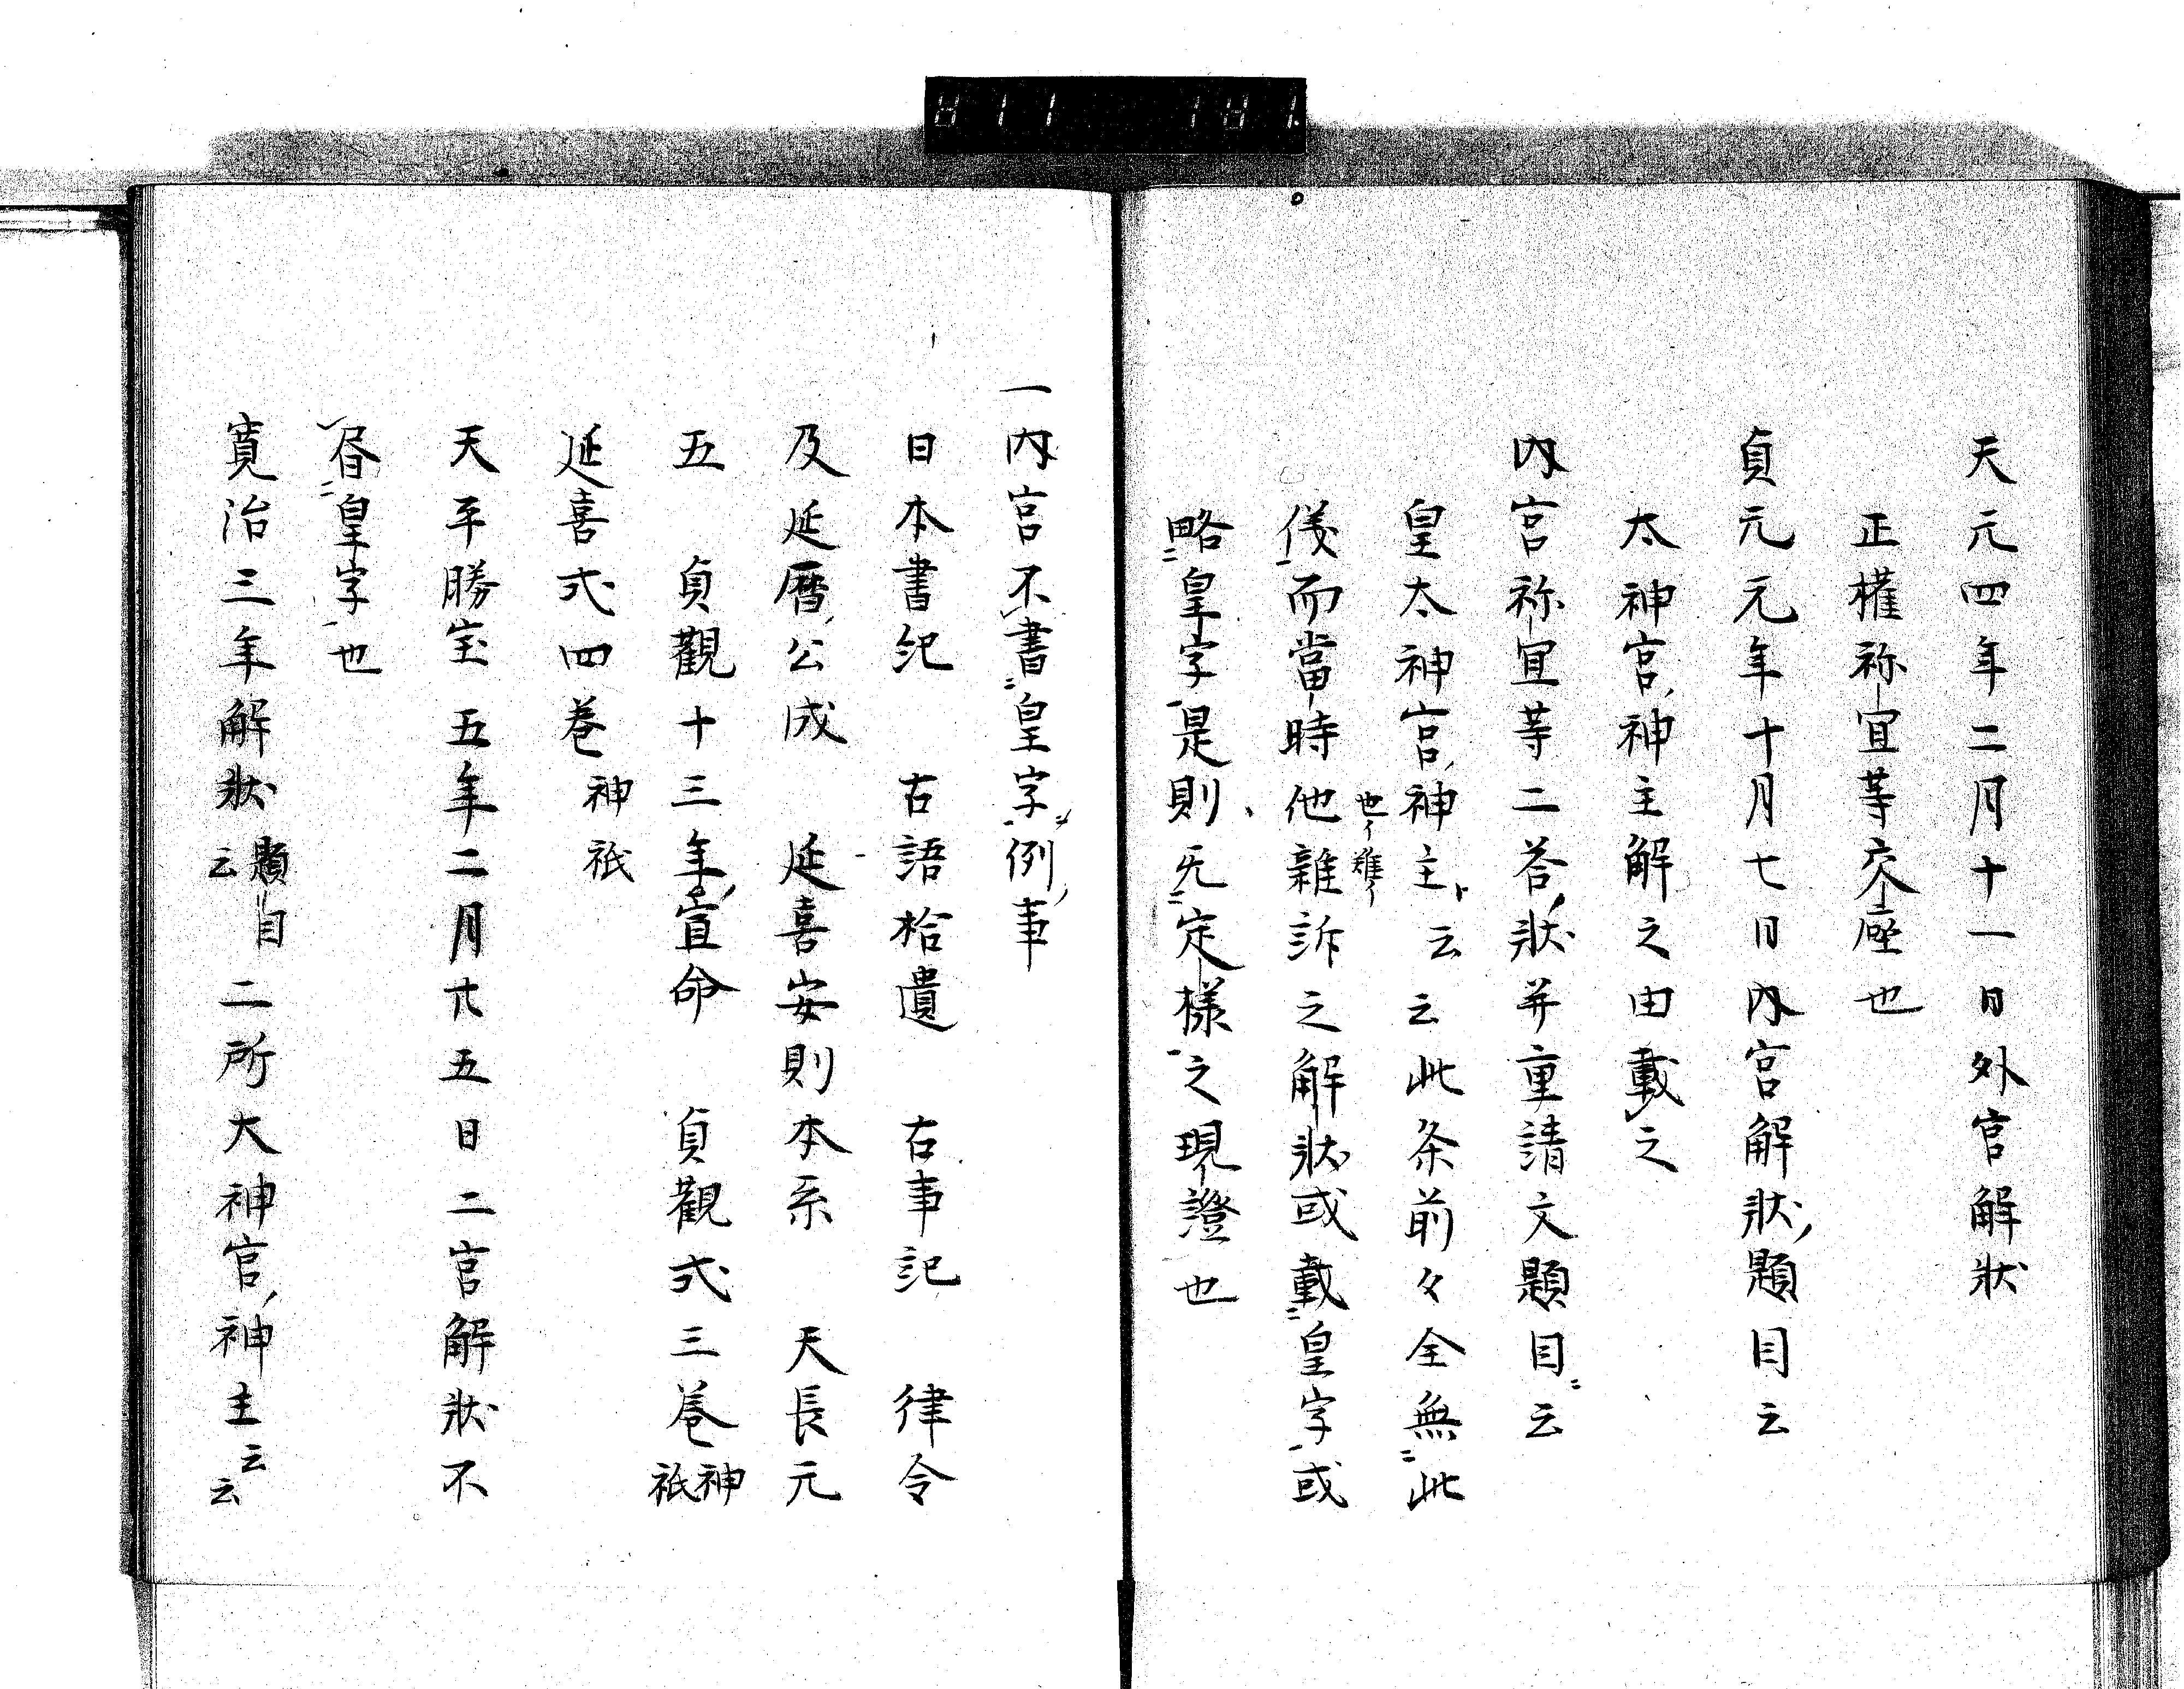 天元四年二月十一日外宮解状
正権祢宜等交座也
貞元元年十月七日内宮解状題目云
太神宮神主解之由載之
内宮祢宜等二荅状并重請文題目云
皇太神宮神主云云此条前々全無此
儀而當時他雜訴之解状或載皇字或
也難
略皇字是則无定樣之現證也
一内宮不書皇字例事
日本書紀 古語拾遺 古事記 律令
及延暦公成 延喜安則本系 天長元
五 貞觀十三年宣命 貞觀式三巻神祇
延喜式四巻神祇
天平勝宝五年二月廿五日二宮解状不
昏皇字也
寛治三年解状題目云二所大神宮神主云云